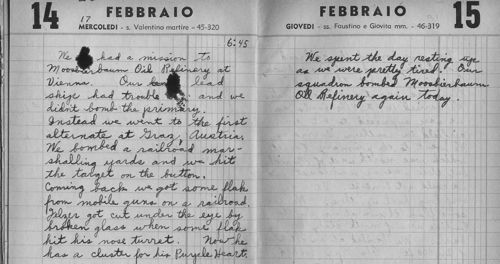 14 FEBBRAIO
17
MERCOLEDI - s. Valentino martire - 45-320
6:45
We had a mission to
Moosbierbaum Oil Refinery at
Vienna. Our lead
ship had trouble and we
didn't bomb the primary.
Instead we went to the first
alternate at Graz, Austria.
We bombed a railroad mar-
shalling yards and we hit
the target on the button.
Coming back we got some flak
from mobile guns on a railroad.
got cut under the eye by
broken glass when some flak
hit his nose turret. Now he
has a cluster for his Purple Heart.
FEBBRAIO 15
GIOVEDI - ss. Faustino e Giovita mm. - 46-319
We spent the day resting up
as we were pretty tired. Our
squadron bombed Moosbierbaum
Oil Refinery again today.